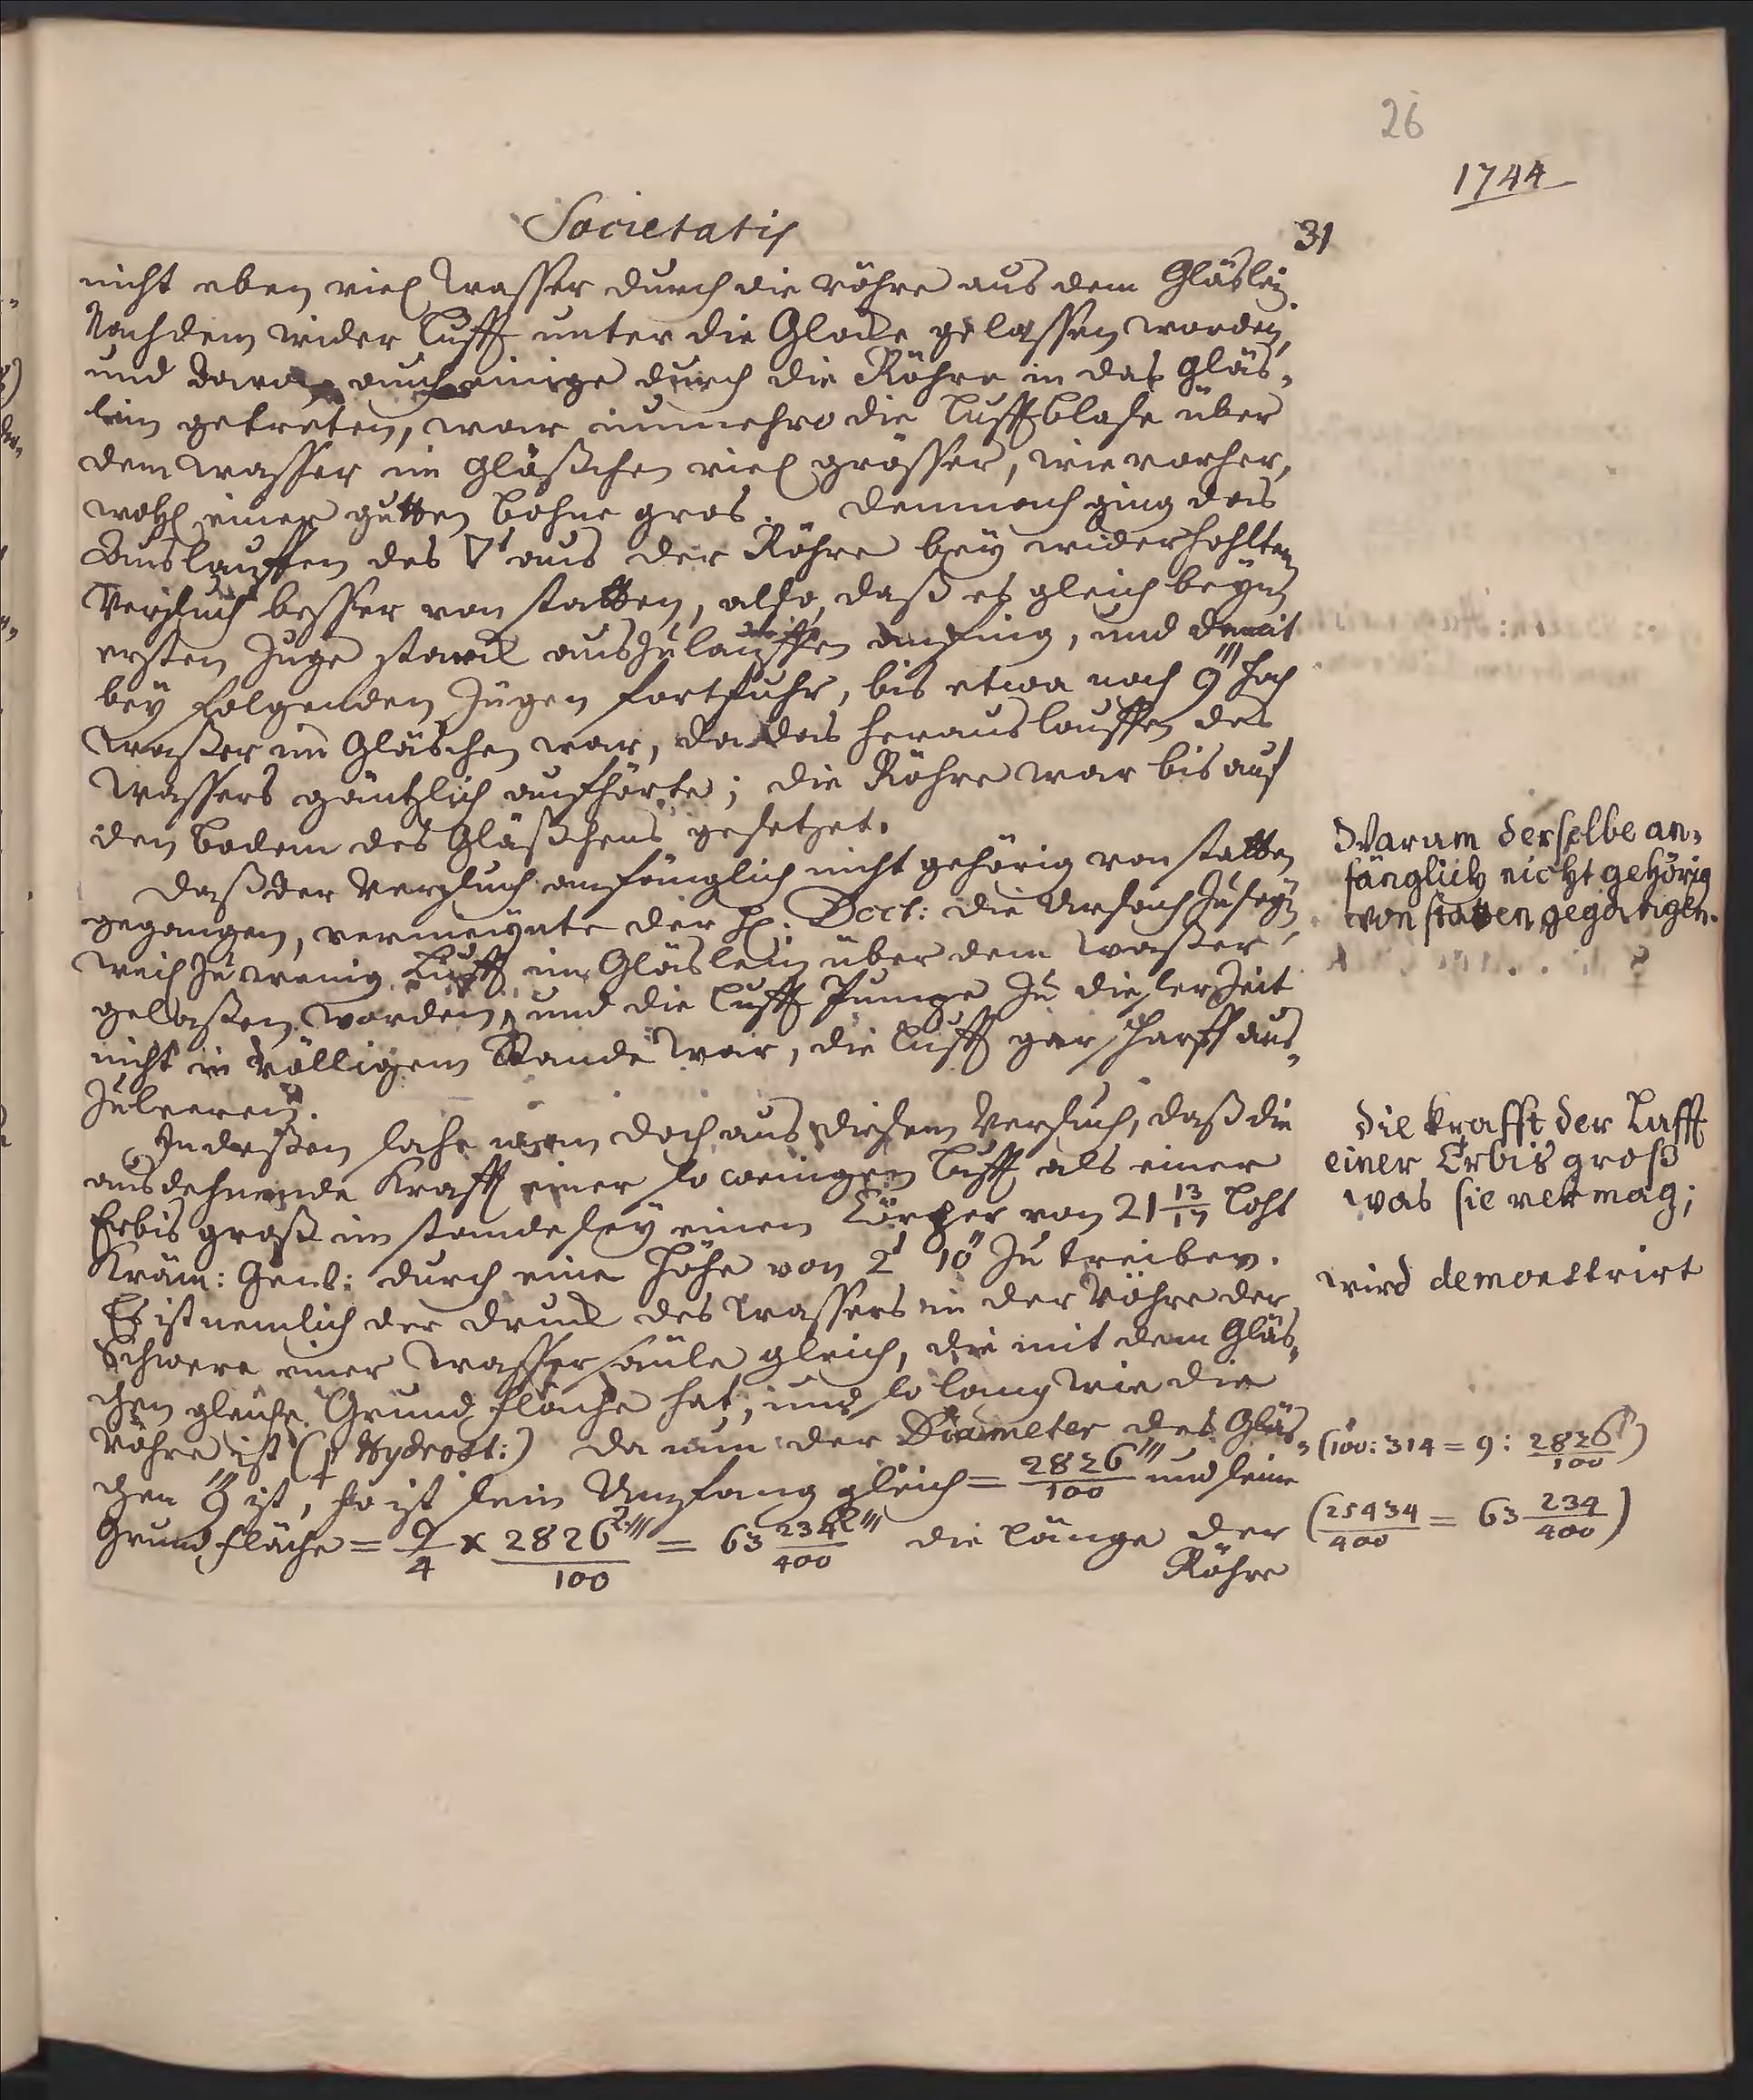 26
1744
Societatis
31
nicht eben viel Wasser durch die röhre aus dem Gläslein.
Nachdem wider Lufft unter die Glocke gelassen worden,
und davon auch einige durch die Röhre in das Gläs-
lein getreten, war nunmehro die Lufftblase über
dem Wasser im Gläßchen viel grösser, wie vorher,
wohl einer gutten Bohne gros. Demnach ging das
Auslauffen des ▽s aus der Röhre bey widerhohlten
Versuch besser von statten, also, daß es gleich beym
ersten Zuge starck auszulauffen anfing, und damit
bey folgenden Zügen fortfuhr, bis etwa noch 9''' hoch
Waßer im Gläschen war, da das herauslauffen des
Wassers gäntzlich aufhörte; die Röhre war bis auf
den Bodem des Gläßchens gesetzet.
Daß der Versuch anfänglich nicht gehörig von statten
gegangen, vermeynte der H. Doct: die Ursach zu seyn,
weil zu wenig Lufft im Gläslein über dem Waßer
gelaßen worden, und die Lufft Pumpe zu dieser Zeit
nicht in völligem Stande war, die Lufft gar scharff aus-
zuleeren.
Indeßen sahe man doch aus diesem Versuch, daß die
ausdehnende Krafft einer so wenigen Lufft als einer
Erbis groß im stande sey einen Cörper von 21 13/17 Loht
Kräm: Gew: durch eine Höhe von 2' 10'' zu treiben.
Es ist nemlich der Druck des Wassers in der Röhre der
Schwere einer Wassersäule gleich, die mit dem Gläs-
chen gleiche Grundfläche hat, und so lang wie die
Röhre ist (p Hydrost:) Da nun der Diameter des Gläs-
chen 9''' ist, so ist sein Umfang gleich = 2826/100''' und seine
Grundfläche = 9/4 x 2826/100 2''' = 63 234/400 2''' die Länge der
Röhre
Warum derselbe an-
fänglich nicht gehörig
von statten gegangen.
die krafft der Lufft
einer Erbis groß
was sie vermag;
wird demonstrirt
(100:314 = 9: 2826/100)
(25434/400 = 63 234/400)